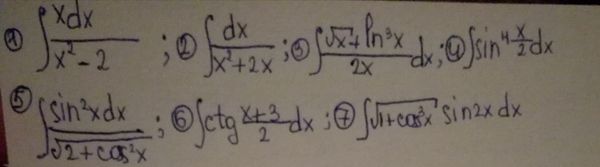 ① ∫ xdx / x²-2 ; ② ∫ dx / x²+2x ; ③ ∫ √x + ln³x / 2x dx ; ④ ∫ sin⁴ x/2 dx
⑤ ∫ sin²x dx / √2+cos²x ; ⑥ ∫ ctg x+3 / 2 dx ; ⑦ ∫ √1+cos³x sin2x dx